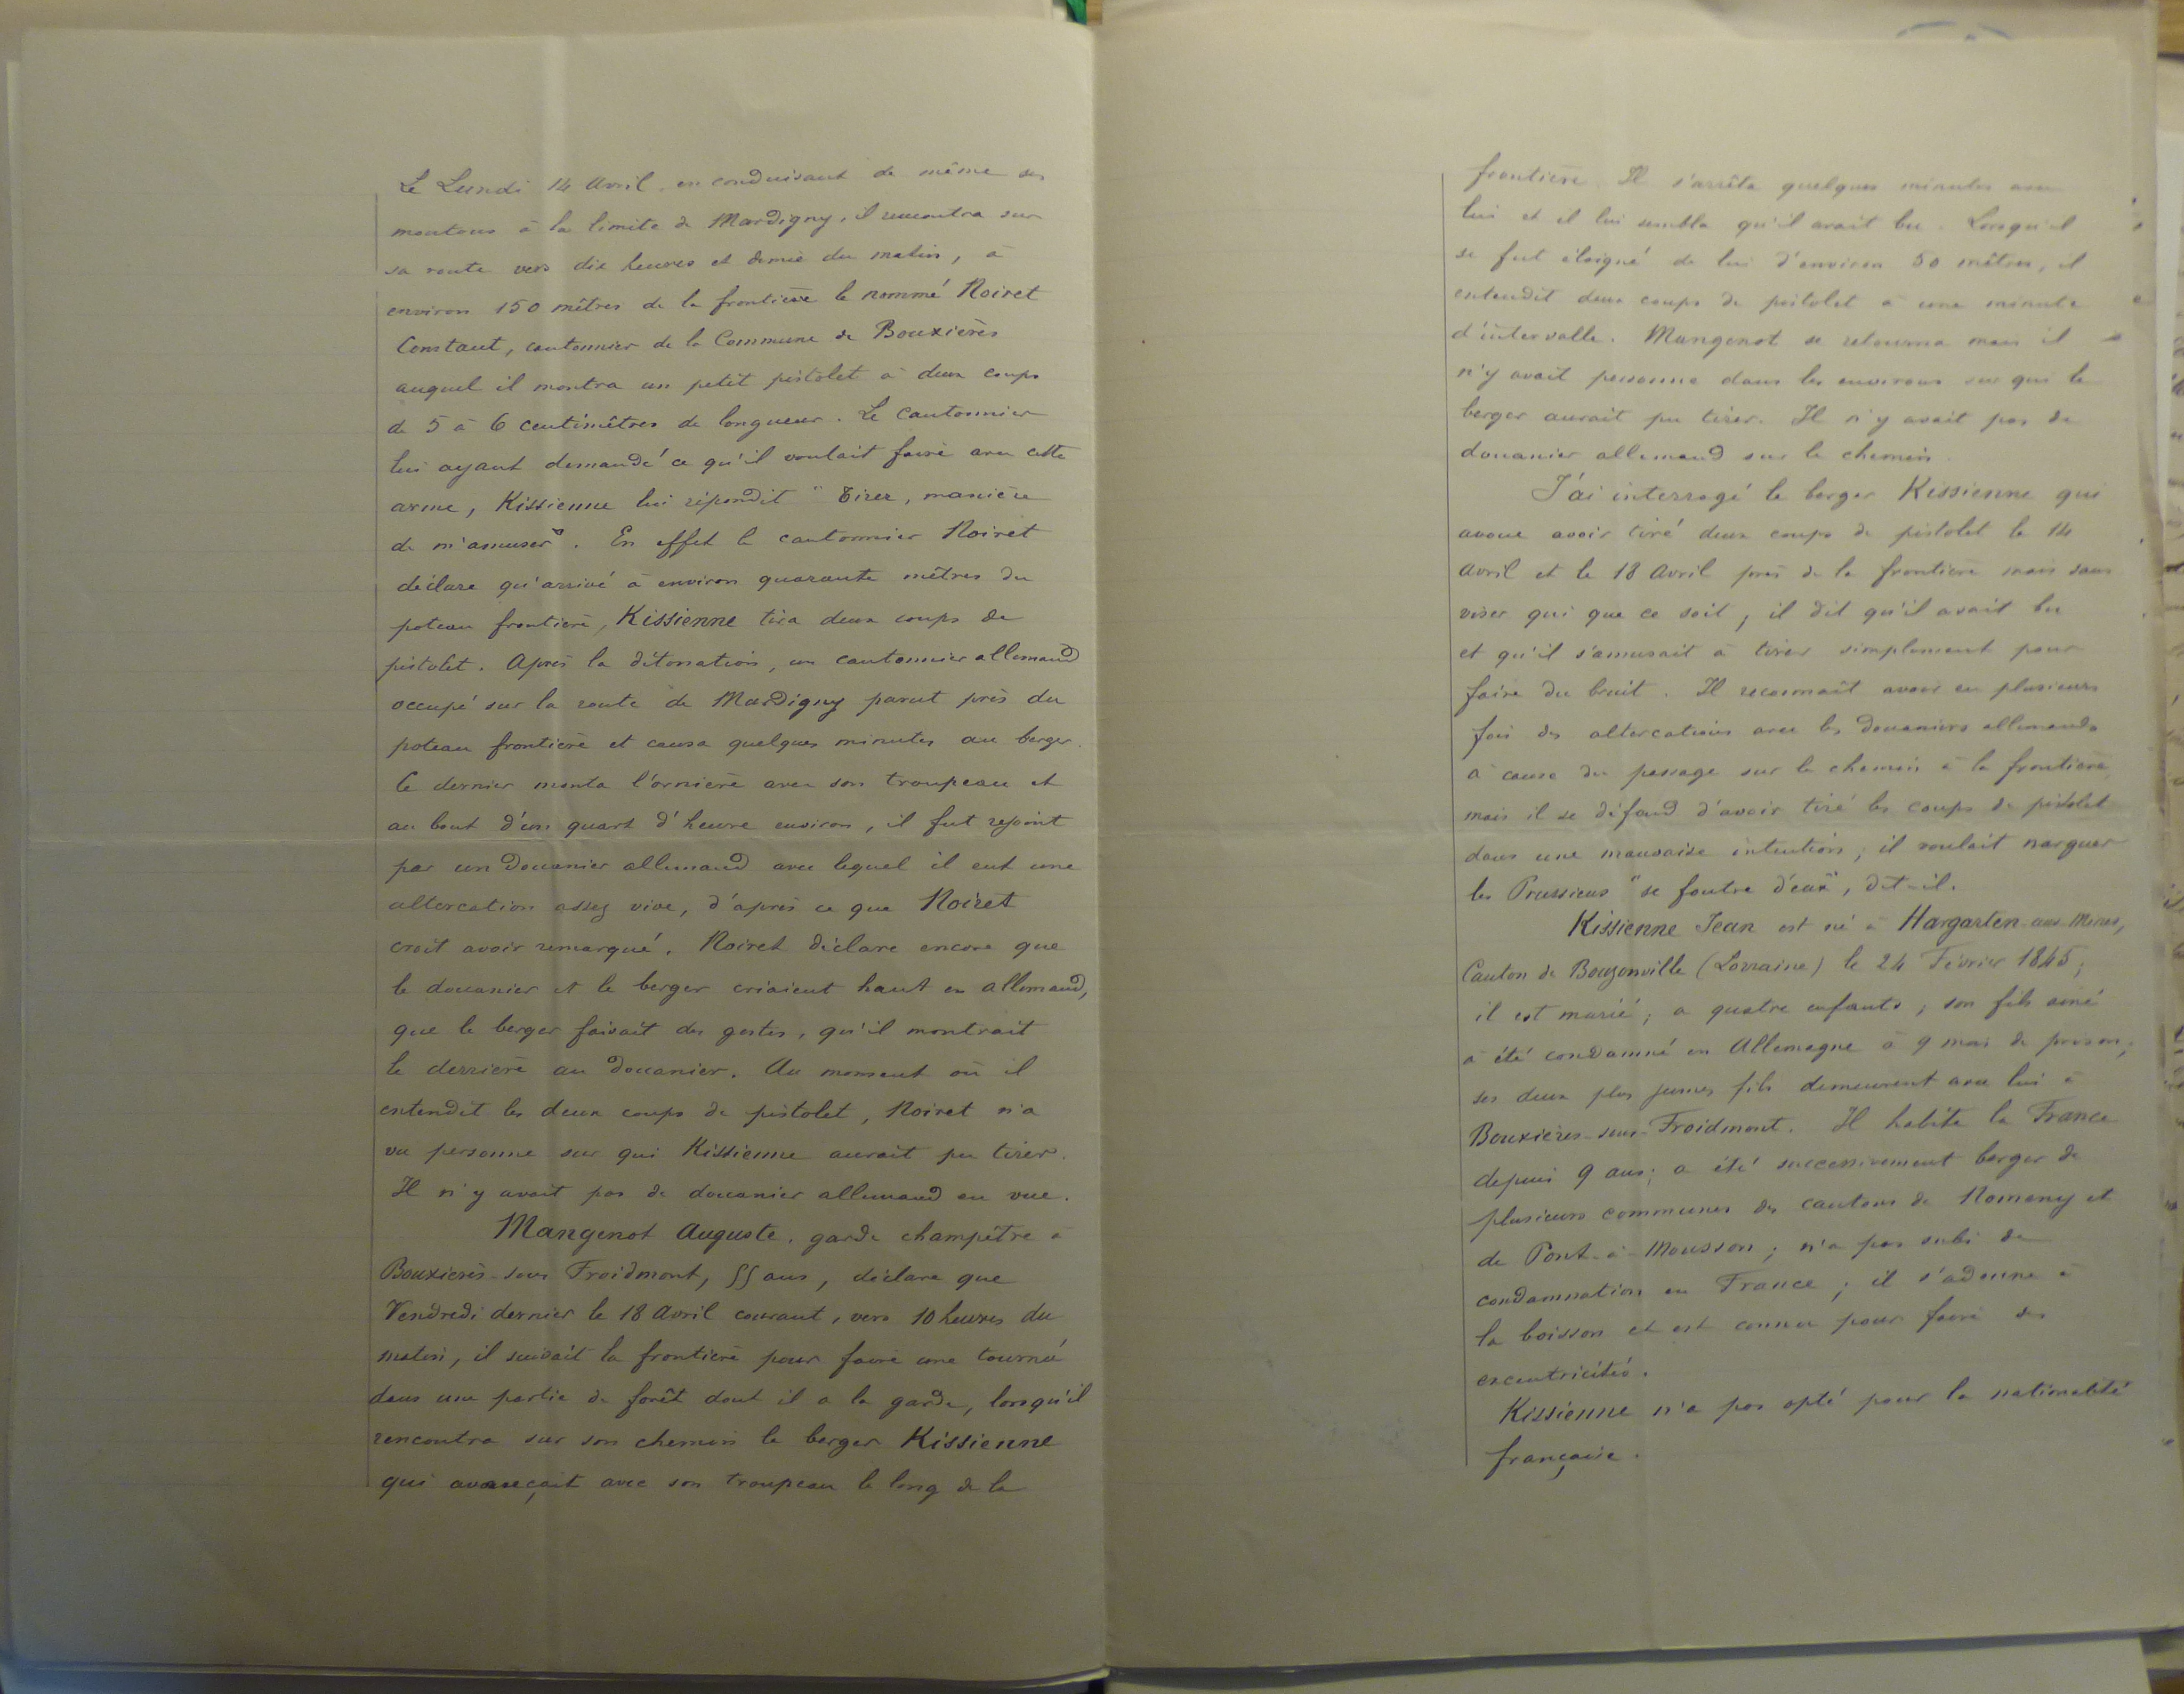 Le Lundi 14 Avril, en conduisant de même ses
moutons à la limite de Mardigny, il rencontra sur
sa route vers dix heures et demie du matin, à
environ 150 mètres de la frontière le nommé Noiret
Constant, cantonnier de la Commune de Bouxières
auquel il montra un petit pistolet à deux coups
de 5 à 6 centimètres de longueur. Le Cantonnier
lui ayant demandé ce qu'il voulait faire avec cette
arme, Kissienne lui répondit "Tirer, manière
de m'amuser". En effet le cantonnier Noiret
déclare qu'arrivé à environ quarante mètres du
poteau frontière, Kissienne tira deux coups de
pistolet. Après la détonation, un cantonnier allemand
occupé sur la route de Mardigny parut près du
poteau frontière et causa quelques minutes au berger.
Ce dernier monta l'ornière avec son troupeau et
au bout d'un quart d'heure environ, il fut rejoint
par un Douanier allemand avec lequel il eut une
altercation assez vive, d'après ce que Noiret
croit avoir remarqué. Noiret déclare encore que
le douanier et le berger criaient haut en allemand,
que le berger faisait des gestes, qu'il montrait
le derrière au douanier. Au moment où il
entendit les deux coups de pistolet, Noiret n'a
vu personne sur qui Kissienne aurait pu tirer.
Il n'y avait pas de douanier allemand en vue.
Mangenot Auguste, garde champêtre à
Bouxières-sous Froidmont, 55 ans, déclare que
Vendredi dernier le 18 Avril courant, vers 10 heures du
matin, il suivait la frontière pour faire une tournée
dans une partie de forêt dont il a la garde, lorsqu'il
rencontra sur son chemin le berger Kissienne
qui avançait avec son troupeau le long de la
frontière. Il s'arrêta quelques minutes avec
lui et il lui sembla qu'il avait bu. Lorsqu'il
se fut éloigné de lui d'environ 50 mètres, il
entendit deux coups de pistolet à une minute
d'intervalle. Mangenot se retourna mais il
n'y avait personne dans les environs sur qui le
berger aurait pu tirer. Il n'y avait pas de
douanier allemand sur le chemin.
J'ai interrogé le berger Kissienne qui
avoue avoir tiré deux coups de pistolet le 14
Avril et le 18 Avril près de la frontière mais sans
viser qui que ce soit, il dit qu'il avait bu
et qu'il s'amusait à tirer simplement pour
faire du bruit. Il reconnaît avoir eu plusieurs
fois des altercations avec les Douaniers allemands
à cause du passage sur le chemin à la frontière
mais il se défend d'avoir tiré les coups de pistolet
dans une mauvaise intention; il voulait narguer
les Prussiens "se foutre d'eux", dit-il.
Kissienne Jean est né à Hargarten-aux-Mines,
Canton de Bouzonville (Lorraine) le 24 Février 1845;
il est marié; a quatre enfants; son fils aîné
a été condamné en Allemagne à 9 mois de prison;
ses deux plus jeunes fils demeurent avec lui à
Bouxières-sous-Froidmont. Il habite la France
depuis 9 ans; a été successivement berger de
plusieurs communes des cantons de Nomeny et
de Pont-à-Mousson; n'a pas subi de
condamnation en France; il s'adonne à
la boisson et est connu pour faire des
excentricités.
Kissienne n'a pas opté pour la nationalité
française.